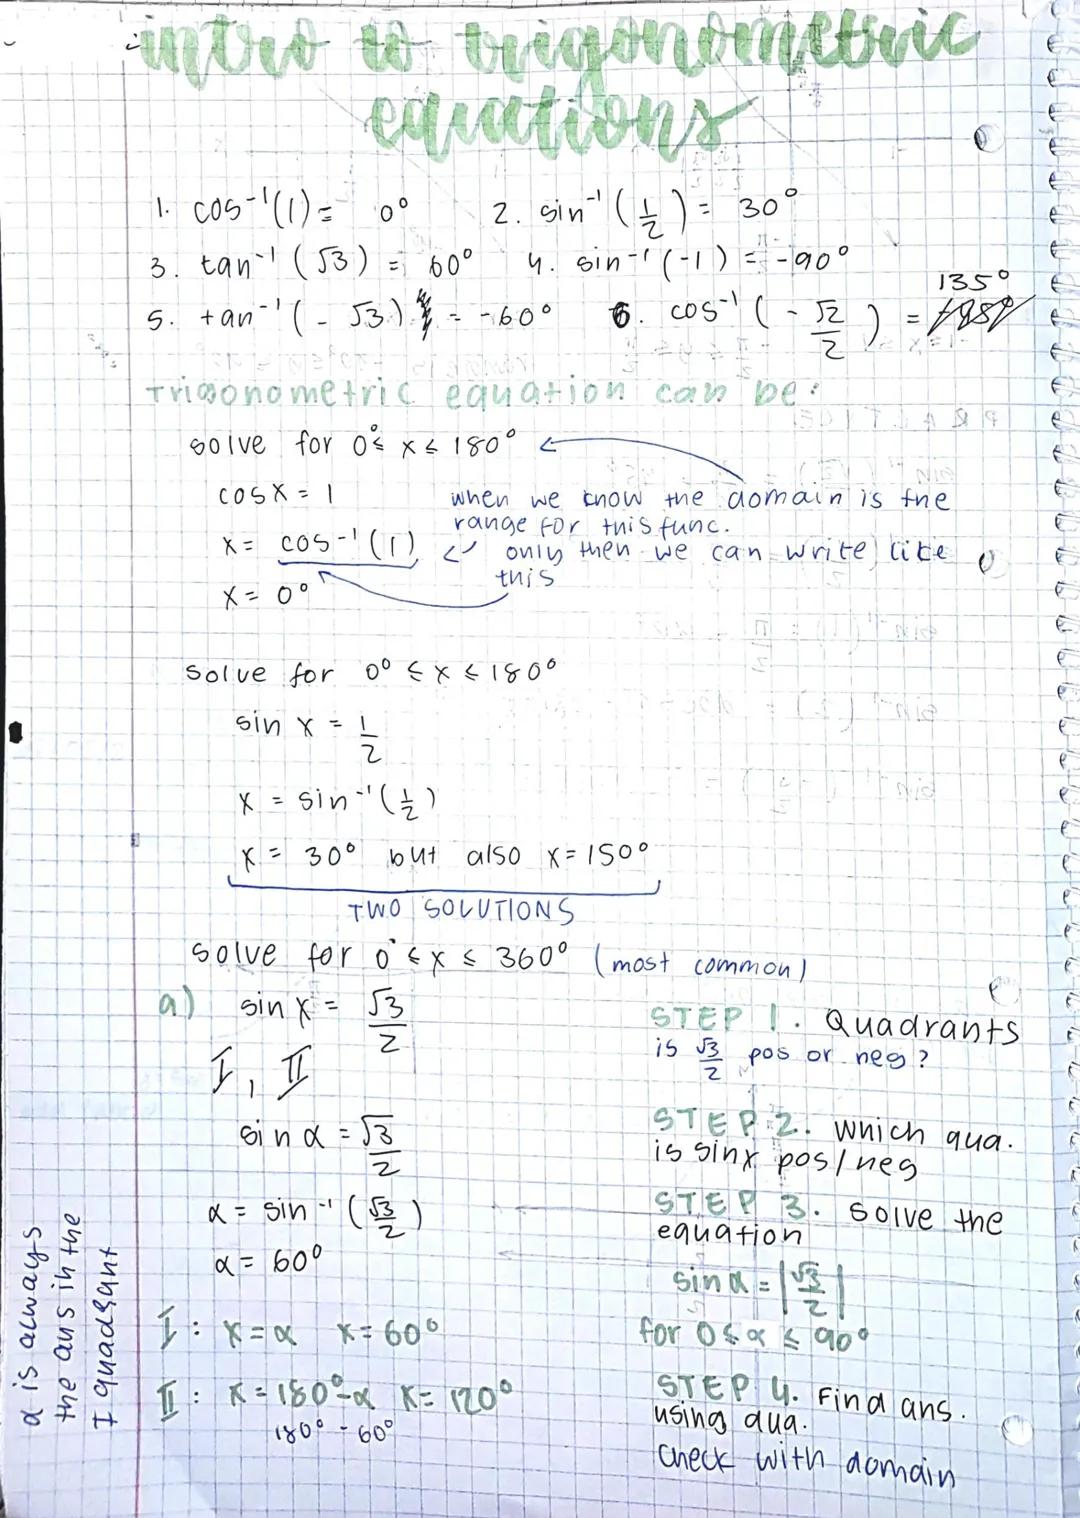 intro to trigonometric
equations
1. cos⁻¹(1) = 0° 2. sin⁻¹(1/2) = 30°
3. tan⁻¹(√3) = 60° 4. sin⁻¹(-1) = -90°
5. tan⁻¹(-√3) = -60° 6. cos⁻¹(-√2/2) = 135°
Trigonometric equation can be:
solve for 0° ≤ x ≤ 180°
cosx = 1
x = cos⁻¹(1)
x = 0°
when we know the domain is the
range for this func.
only then we can write like
this
solve for 0° ≤ x ≤ 180°
sin x = 1/2
x = sin⁻¹(1/2)
x = 30° but also x = 150°
TWO SOLUTIONS
solve for 0° ≤ x ≤ 360° (most common)
a) sin x = √3/2
I, II
sin α = √3/2
α = sin⁻¹(√3/2)
α = 60°
I: x = α x = 60°
II: x = 180° - α x = 120°
180° - 60°
STEP 1. Quadrants
is √3/2 pos or neg?
STEP 2. Which qua.
is sinx pos/neg
STEP 3. solve the
equation
sin α = |√3/2|
for 0 ≤ α ≤ 90°
STEP 4. Find ans.
using qua.
Check with domain
α is always
the ans in the
I quadrant